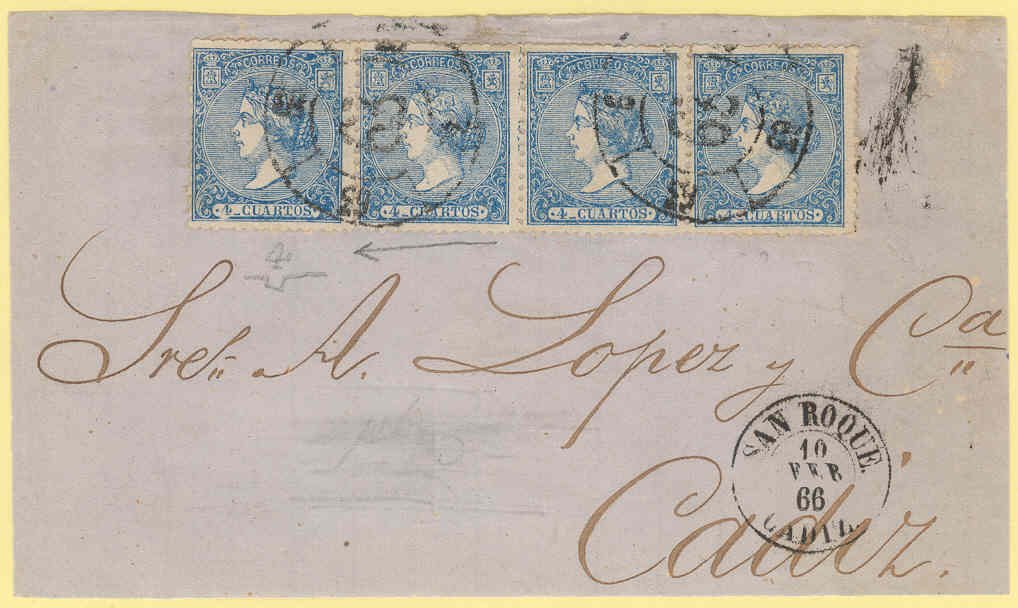 CORREOS CORREOS CORREOS CORREOS
4 CUARTOS 4 CUARTOS 4 CUARTOS 4 CUARTOS
Sres A. Lopez y Cª
SAN ROQUE
10
FEB
66
CADIZ
Cadiz.